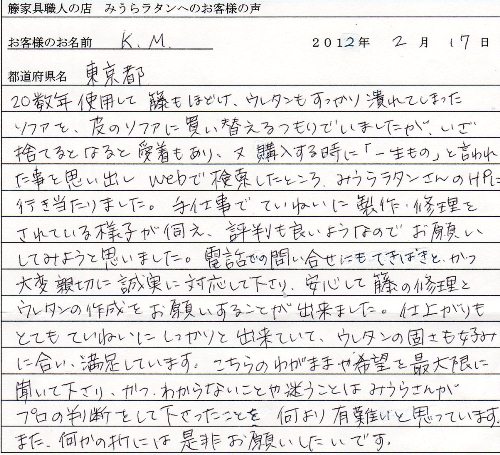 籐家具職人の店 みうらラタンへのお客様の声
お客様のお名前 K.M. 2012年 2月 17日
都道府県名 東京都
20数年使用して籐もほどけ、ウレタンもすっかり潰れてしまった
ソファを、皮のソファに買い替えるつもりでいましたが、いざ
捨てるとなると愛着もあり、又購入する時に「一生もの」と言われ
た事を思い出し webで検索したところ、みうらラタンさんのHPに
行き当たりました。手仕事でていねいに製作・修理を
されている様子が伺え、評判も良いようなのでお願い
してみようと思いました。電話での問い合せにもてきぱきと、かつ
大変親切に誠実に対応して下さり、安心して籐の修理と
ウレタンの作成をお願いすることが出来ました。仕上がりも
とてもていねいにしっかりと出来ていて、ウレタンの固さも好み
に合い、満足しています。こちらのわがままや希望を最大限に
聞いて下さり、かつ、わからないことや迷うことはみうらさんが
プロの判断をして下さったことを 何より有難いと思っています。
また、何かの折には是非お願いしたいです。